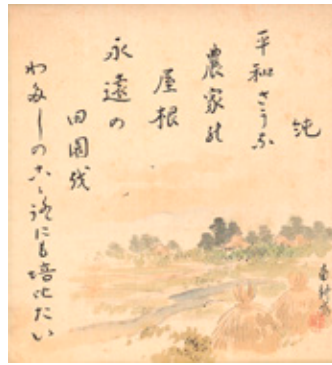 平和さうな
農家の
屋根
永遠の
田園を
わたしのこゝろにも培ひたい